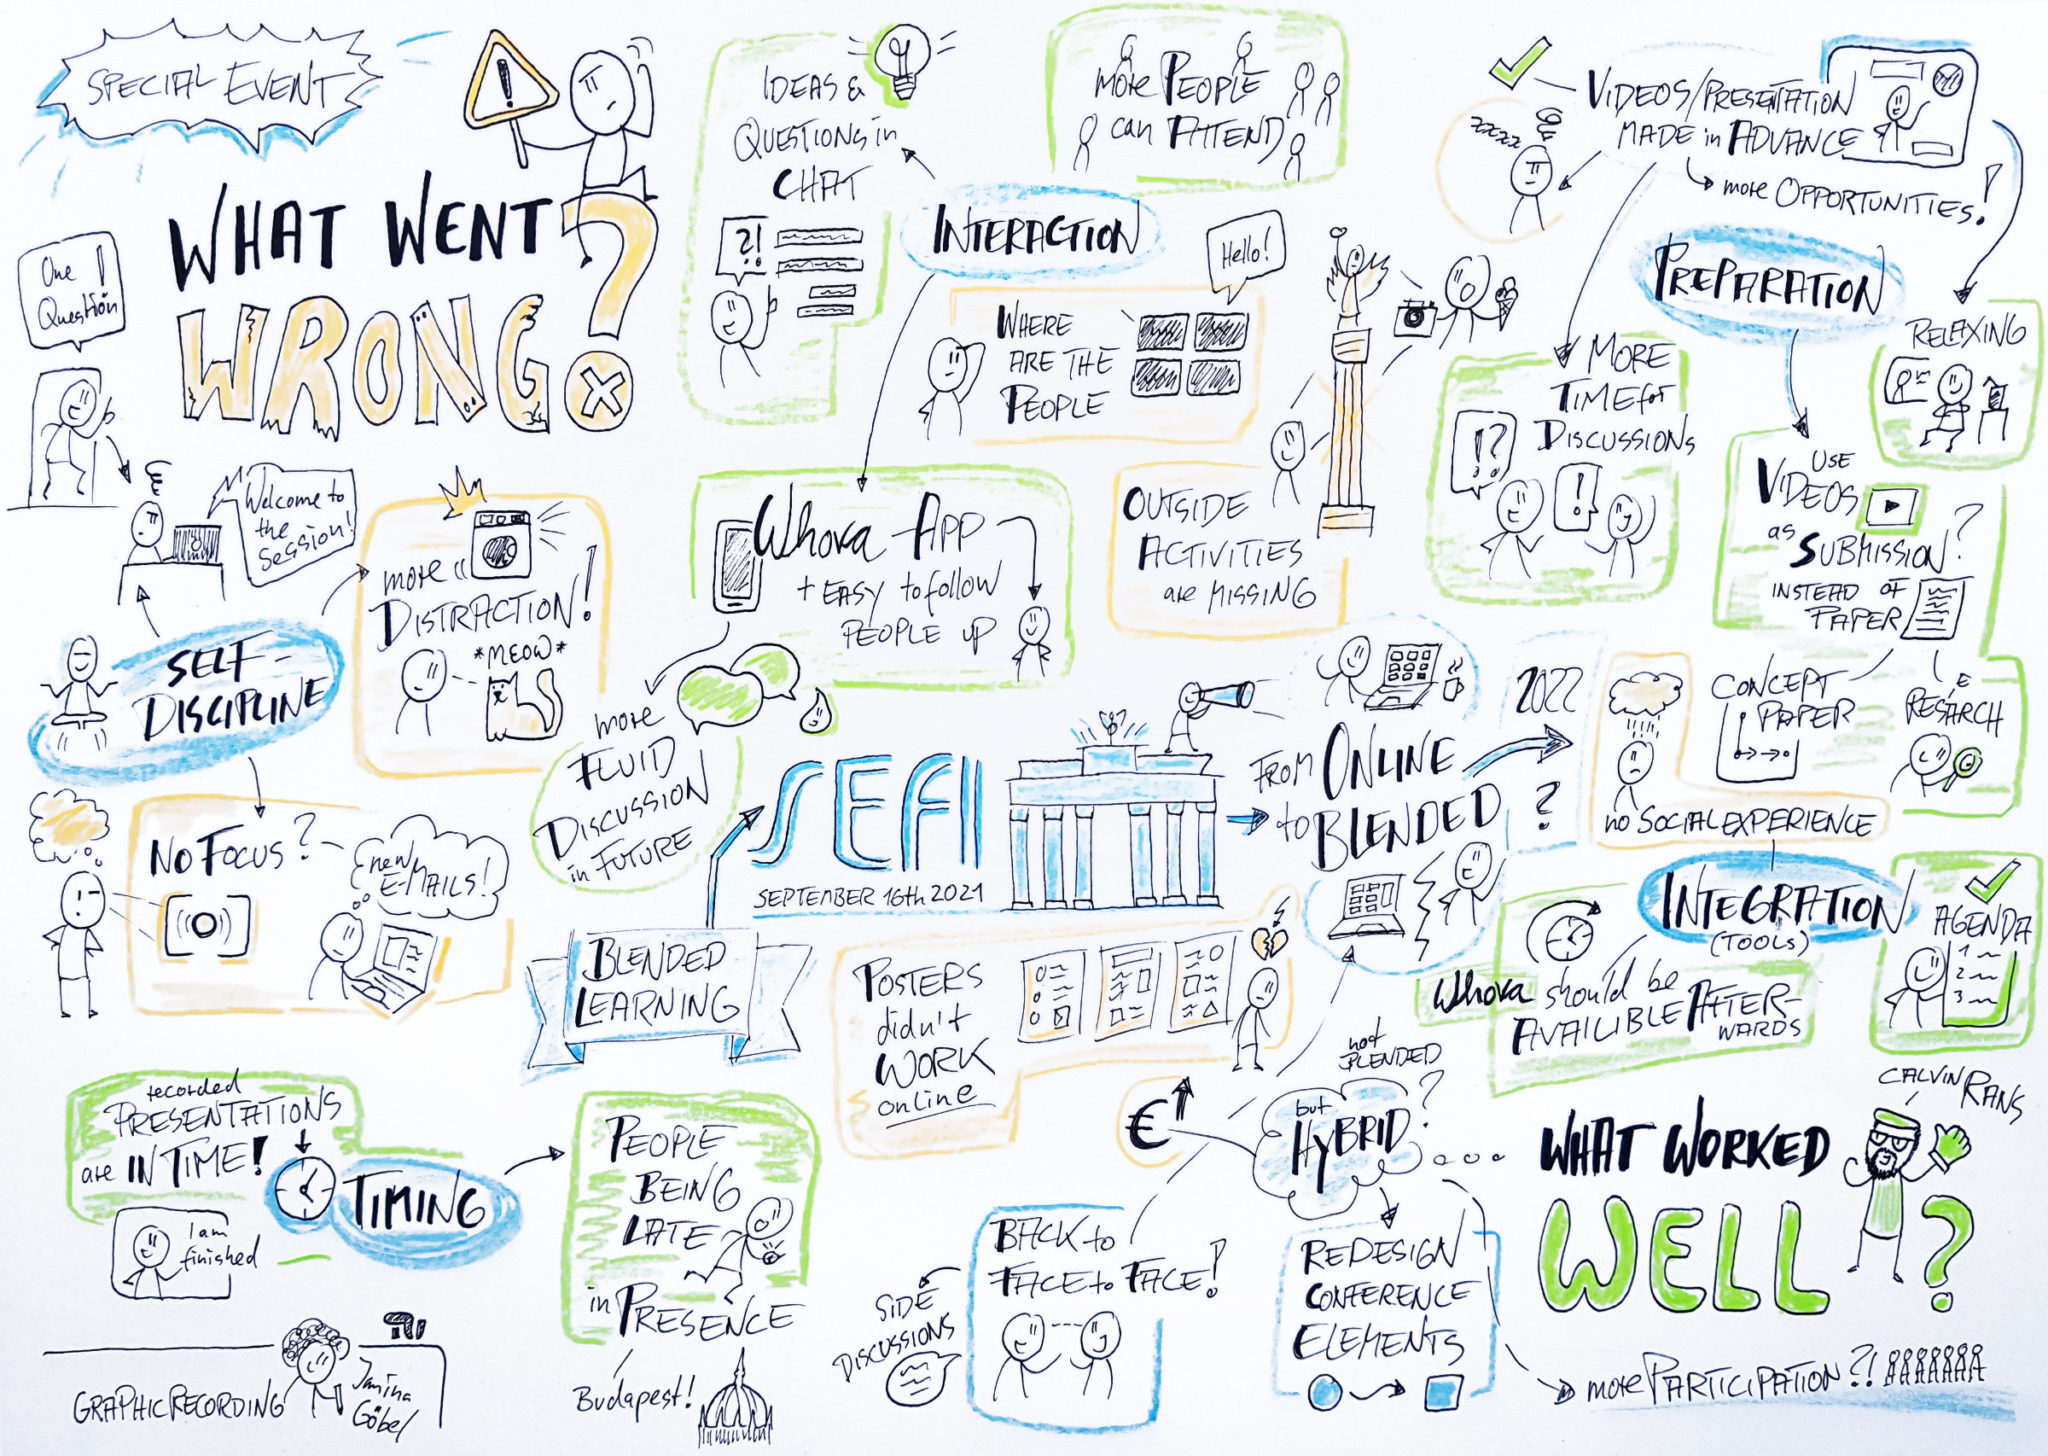 SPECIAL EVENT
WHAT WENT
WRONG?
One
Question!
Welcome to
the
Session!
SELF-
DISCIPLINE
more
DISTRACTION!
*MEOW*
NO FOCUS?
new
E-MAILS!
recorded
PRESENTATIONS
are IN TIME!
TIMING
I am
finished
PEOPLE
BEING
LATE
in PRESENCE
Budapest!
GRAPHIC RECORDING
Janina
Göbel
IDEAS &
QUESTIONS in
CHAT
?!
INTERACTION
more PEOPLE
can ATTEND
WHERE
ARE THE
PEOPLE
Hello!
Whova APP
+ EASY to follow
PEOPLE UP
more
FLUID
DISCUSSION
in FUTURE
OUTSIDE
ACTIVITIES
are MISSING
SEFI
SEPTEMBER 16th 2021
BLENDED
LEARNING
POSTERS
didn't
WORK
online
FROM ONLINE
to BLENDED
2022
?
not
BLENDED
but
HYBRID?
€
BACK to
FACE to FACE!
SIDE
DISCUSSIONS
REDESIGN
CONFERENCE
ELEMENTS
more PARTICIPATION?!
VIDEOS/PRESENTATION
MADE in ADVANCE
more OPPORTUNITIES!
zzzzz
PREPARATION
RELAXING
MORE
TIME for
DISCUSSIONS
!?
!
USE
VIDEOS
as SUBMISSION?
INSTEAD OF
PAPER
CONCEPT
PAPER
RESEARCH
no SOCIAL EXPERIENCE
INTEGRATION
(TOOLS)
AGENDA
1
2
3
Whova should be
AVAILIBLE AFTER-
WARDS
CALVIN RANS
WHAT WORKED
WELL?